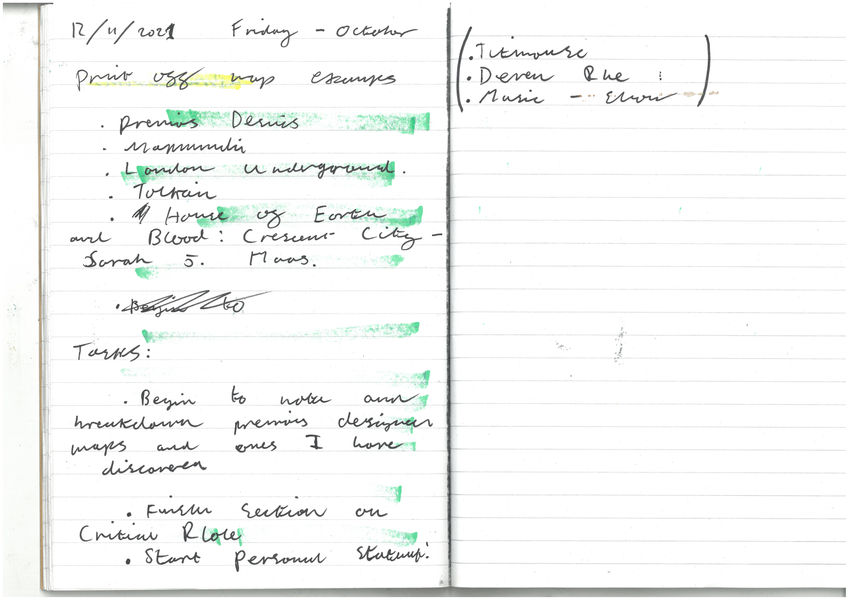 12/11/2021 Friday - October
Print off map examples
. previos Denis
.
. London Underground.
. Tolkain
. House of Earth
and Blood: Crescent City -
Sarah J. Maas.
. Begin to
Tasks:
. Begin to note and
breakdown previos designer
maps and ones I have
discovered
. Finish section on
Critial Role
. Start Personal
. Titmouse
. Deven Rue :
. Music - Show